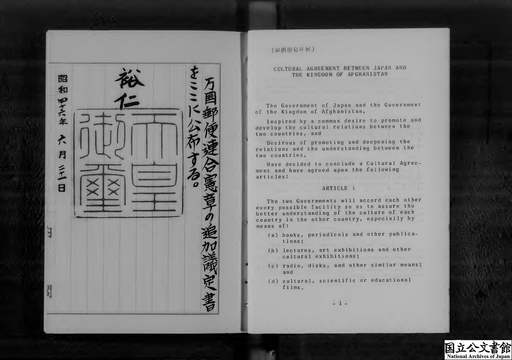 万国郵便連合憲章の追加議定書
をここに公布する。
裕仁
天皇
御璽
昭和四十六年 六月 二十一日
CULTURAL AGREEMENT BETWEEN JAPAN AND
THE KINGDOM OF AFGHANISTAN
The Government of Japan and the Government
of the Kingdom of Afghanistan,
Inspired by a common desire to promote and
develop the cultural relations between the
two countries, and
Desirous of promoting and deepening the
relations and the understanding between the
two countries,
Have decided to conclude a Cultural Agree-
ment and have agreed upon the following
articles:
ARTICLE 1
The two Governments will accord each other
every possible facility so as to assure the
better understanding of the culture of each
country in the other country, especially by
means of:
(a) books, periodicals and other publica-
tions;
(b) lectures, art exhibitions and other
cultural exhibitions;
(c) radio, disks, and other similar means;
and
(d) cultural, scientific or educational
films.
- 1 -
国立公文書館
National Archives of Japan